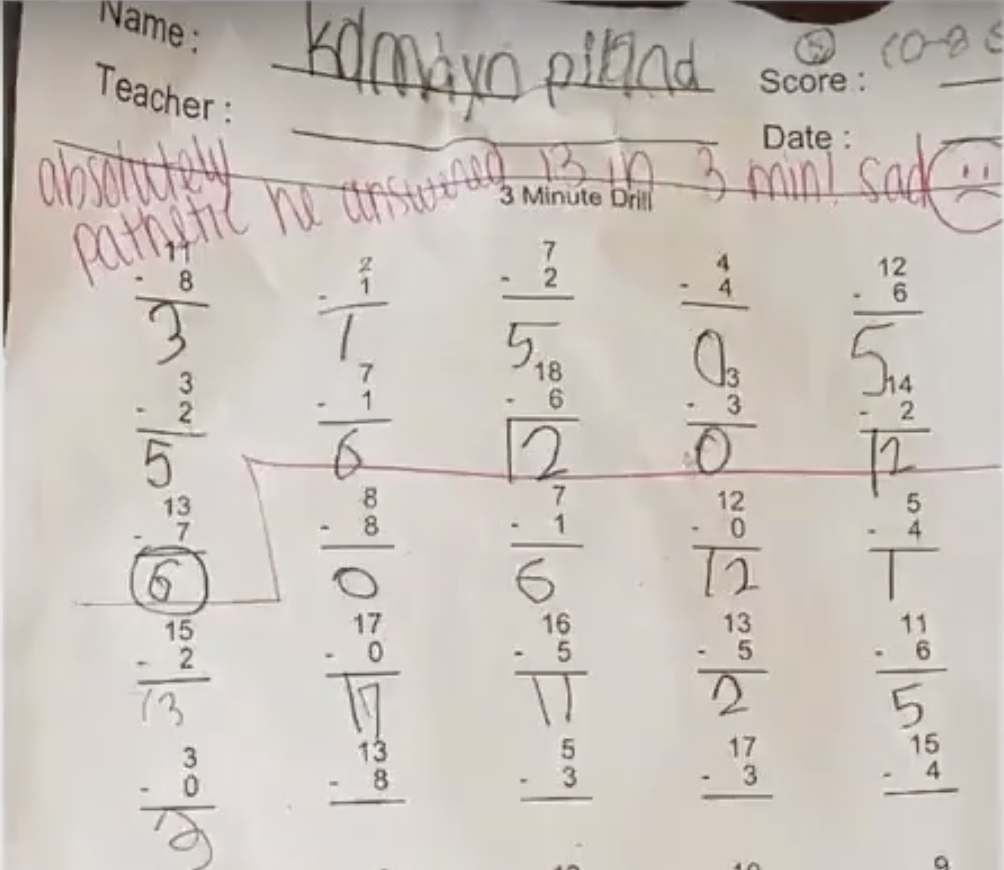 Name : Kamdyn piland
Score : 10-8
Teacher :
Date :
absolutely pathetic he answered 13 in 3 min! sad
3 Minute Drill
11 2 7 4 12
- 8 - 1 - 2 - 4 - 6
3 1 5 0 5
3 7 18 3 14
- 2 - 1 - 6 - 3 - 2
5 6 12 0 12
13 8 7 12 5
- 7 - 8 - 1 - 0 - 4
6 0 6 12 1
15 17 16 13 11
- 2 - 0 - 5 - 5 - 6
13 17 11 2 5
3 13 5 17 15
- 0 - 8 - 3 - 3 - 4
3
9